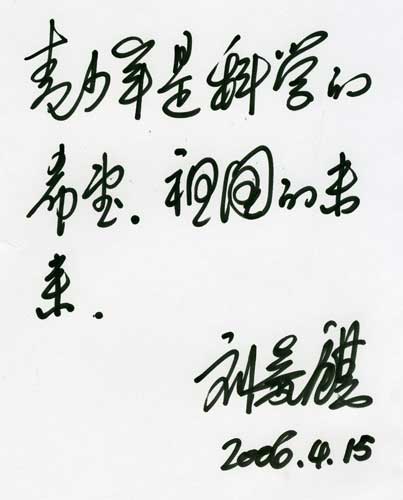 青少年是科学的
希望.祖国的未
来.
刘嘉麒
2006.4.15